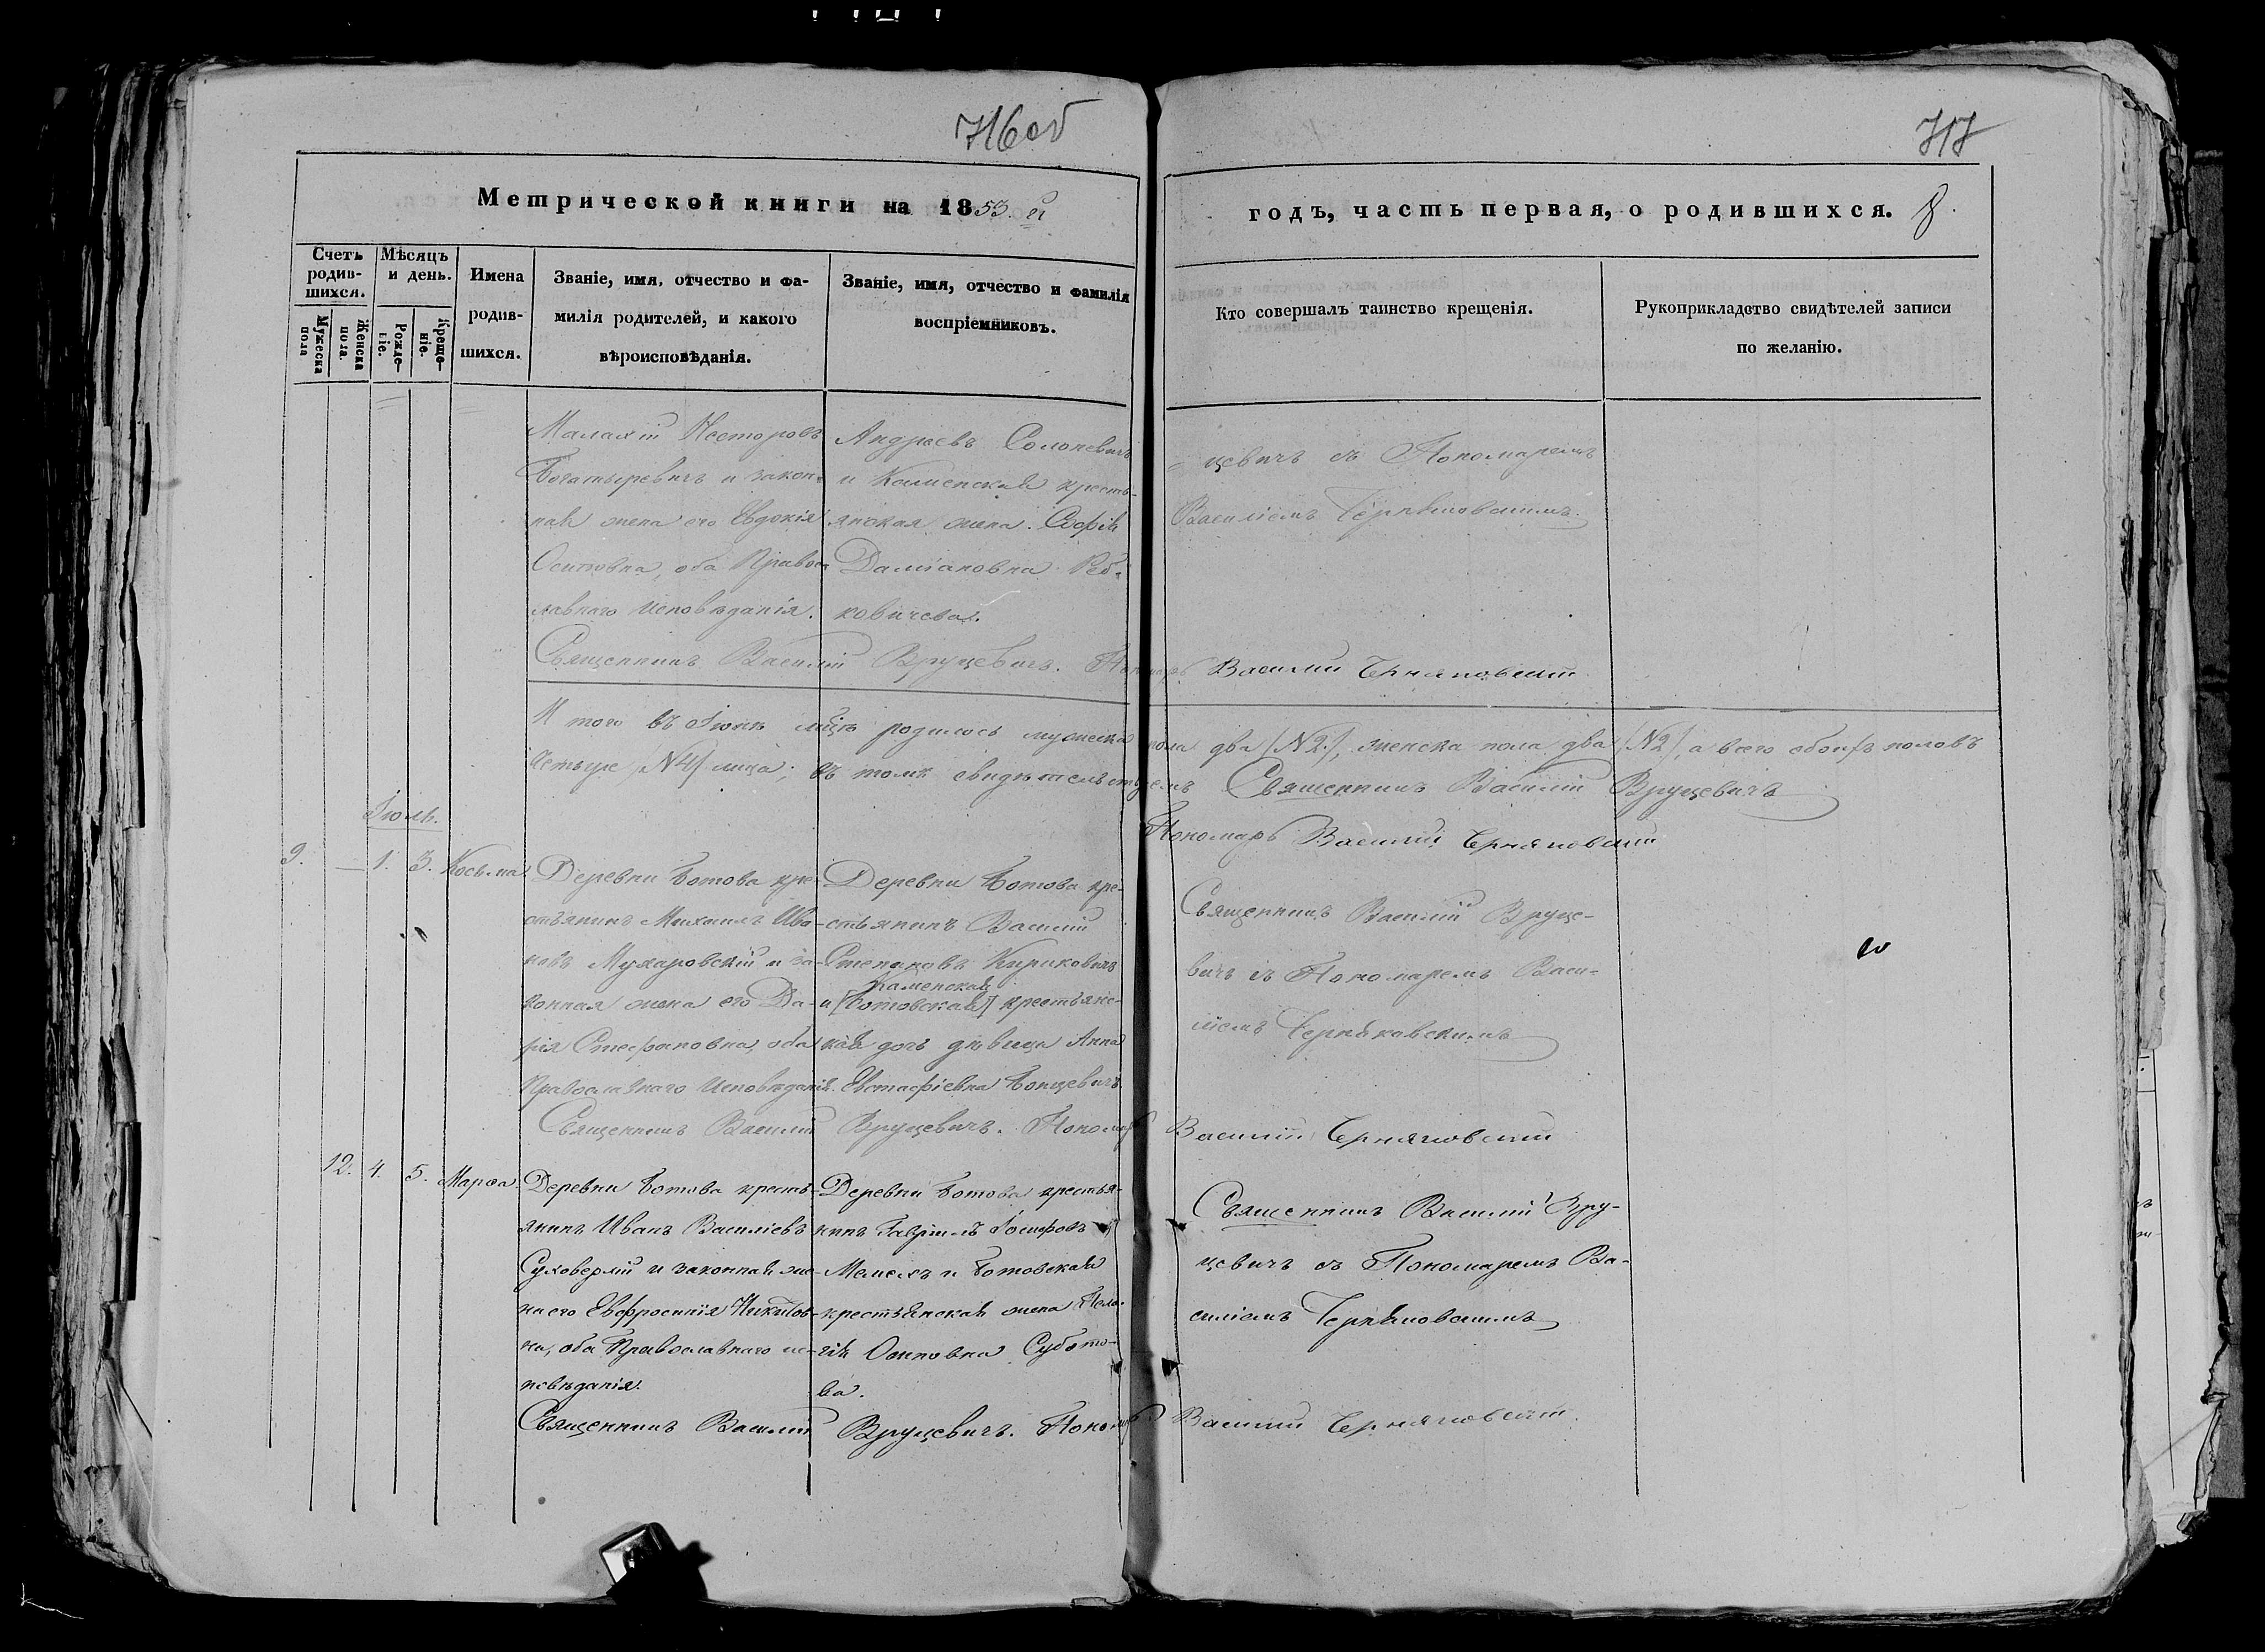 716об
717
Метрической книги на 1853. й
годъ, часть первая, о родившихся. 8.
Счетъ родив-шихся.
Мужеска пола
Женска пола.
Мѣсяцъ и день.
Рожде-ніе.
Креще-ніе.
Имена
родив-
шихся.
Званіе, имя, отчество и фа-
милія родителей, и какого
вѣроисповѣданія.
Званіе, имя, отчество и фамилія
воспріемниковъ.
Кто совершалъ таинство крещенія.
Рукоприкладство свидѣтелей записи
по желанію.
Малахій Несторовъ
Богатыревичъ и закон-
ная жена его Евдокія
Осиповна, оба Правос-
лавнаго исповѣданія.
Андреевъ Солоневичъ
и Каменская кресть-
янская жена Софія
Даміановна Реб-
ковичева.
цевичъ съ Пономаремъ
Василіемъ Черняковскимъ.
Священникъ Василій Вруцевичъ. Пономарь Василий Черняковский
И того въ Іюнѣ мцѣ родилось мужеска пола два /№2/, женска пола два /№2/, а всего обоихъ половъ
четыре /№4/ лица; въ томъ свидѣтельствуемъ Священникъ Василій Вруцевичъ
Пономарь Василий Черняковский
Іюль.
9. — 1. 3. Косьма
Деревни Ботова кре-
стьянинъ Михаилъ Ива-
новъ Мухаровскій и за-
конная жена его Да-
рія Стефановна, оба
Православнаго исповѣданія.
Деревни Ботова кре-
стьянинъ Василій
Степановъ Кириковичъ
каменская
и [Ботовская] крестьянс-
кая дочь дѣвица Анна
Евстафіевна Бонцевичъ
Священникъ Василій Вруце-
вичъ съ Пономаремъ Васи-
ліемъ Черняковскимъ
Священникъ Василій Вруцевичъ. Пономарь Василий Черняковский
12. 4. 5. Марфа.
Деревни Ботова кресть-
янинъ Иванъ Василіевъ
Суховерхій и законная же-
на его Евфросинія Никитов-
на, оба Православнаго ис-
повѣданія.
Деревни Ботова крестья-
нинъ Гавріилъ Іосифовъ
Мамехъ и Ботовская
крестьянская жена Пела-
гія Осиповна Субото-
ва.
Священникъ Василій Вру-
цевичъ съ Пономаремъ Ва-
силіемъ Черняковскимъ
Священникъ Василій Вруцевичъ. Пономарь Василий Черняковский.